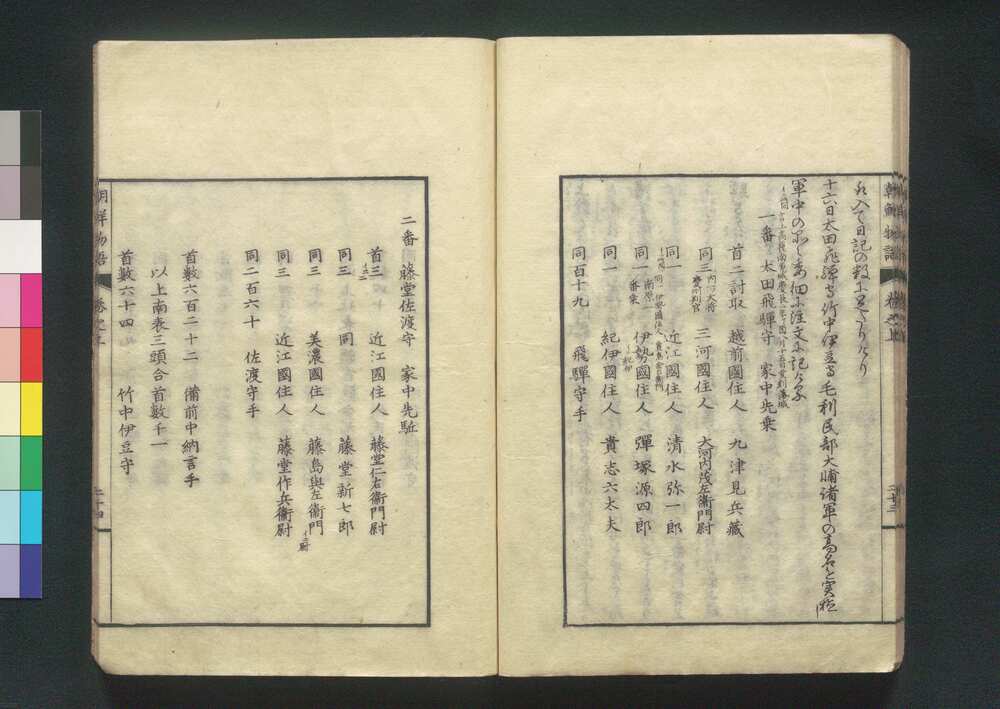 朝鮮物語 巻之上
二十三
れ入て日記の数に
十六日太田飛騨守竹中伊豆守毛利民部大輔諸軍の高名を実検
軍中の 委細に注文に記
一番 太田飛騨守 家中先乗
首二討取 越前國住人 九津見兵藏
同三 三河國住人 大河内茂左衞門尉
同一 近江國住人 清水弥一郎
同一 伊勢國住人 彈塚源四郎
同一 紀伊國住人 貴志六太夫
同百十九 飛騨守手
二番 藤堂佐渡守 家中先駈
首三 近江國住人 藤堂仁右衞門尉
同三 同 藤堂新七郎
同三 美濃國住人 藤島與左衞門
同三 近江國住人 藤堂作兵衞尉
同二百六十 佐渡守手
首數六百二十二 備前中納言手
以上南表三頭合首數千一
首數六十四 竹中伊豆守
朝鮮物語 巻之上
二十四